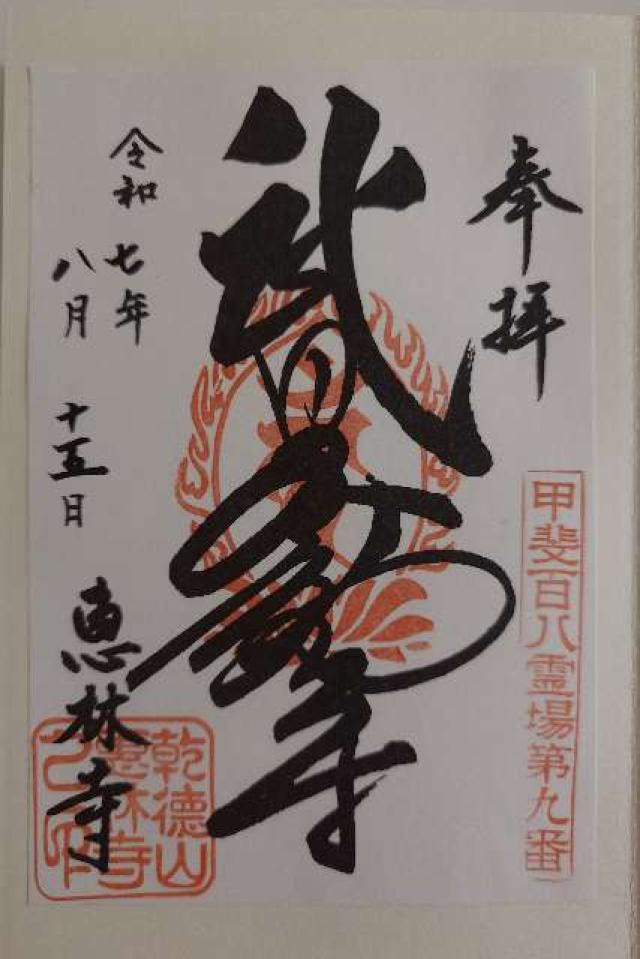 奉拝
甲斐百八霊場第九番
武田不動尊
令和七年
八月十五日
恵林寺
乾徳山
恵林寺
之印